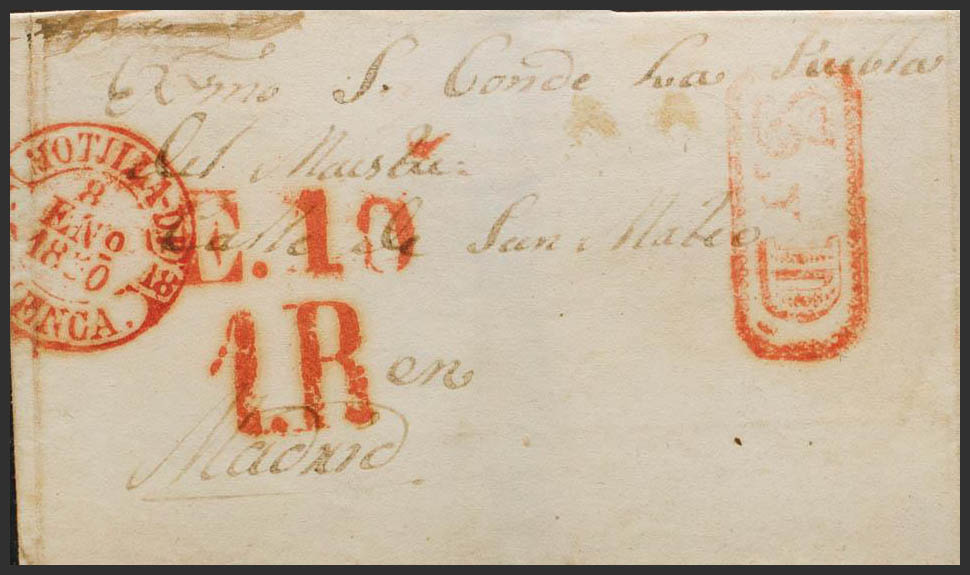 Exmo S. Conde La Puebla
Del Maestre
Calle de San Mateo
en
Madrid
MOTILLA-D
8
ENo
1850
ENCA.
E.19
1.R